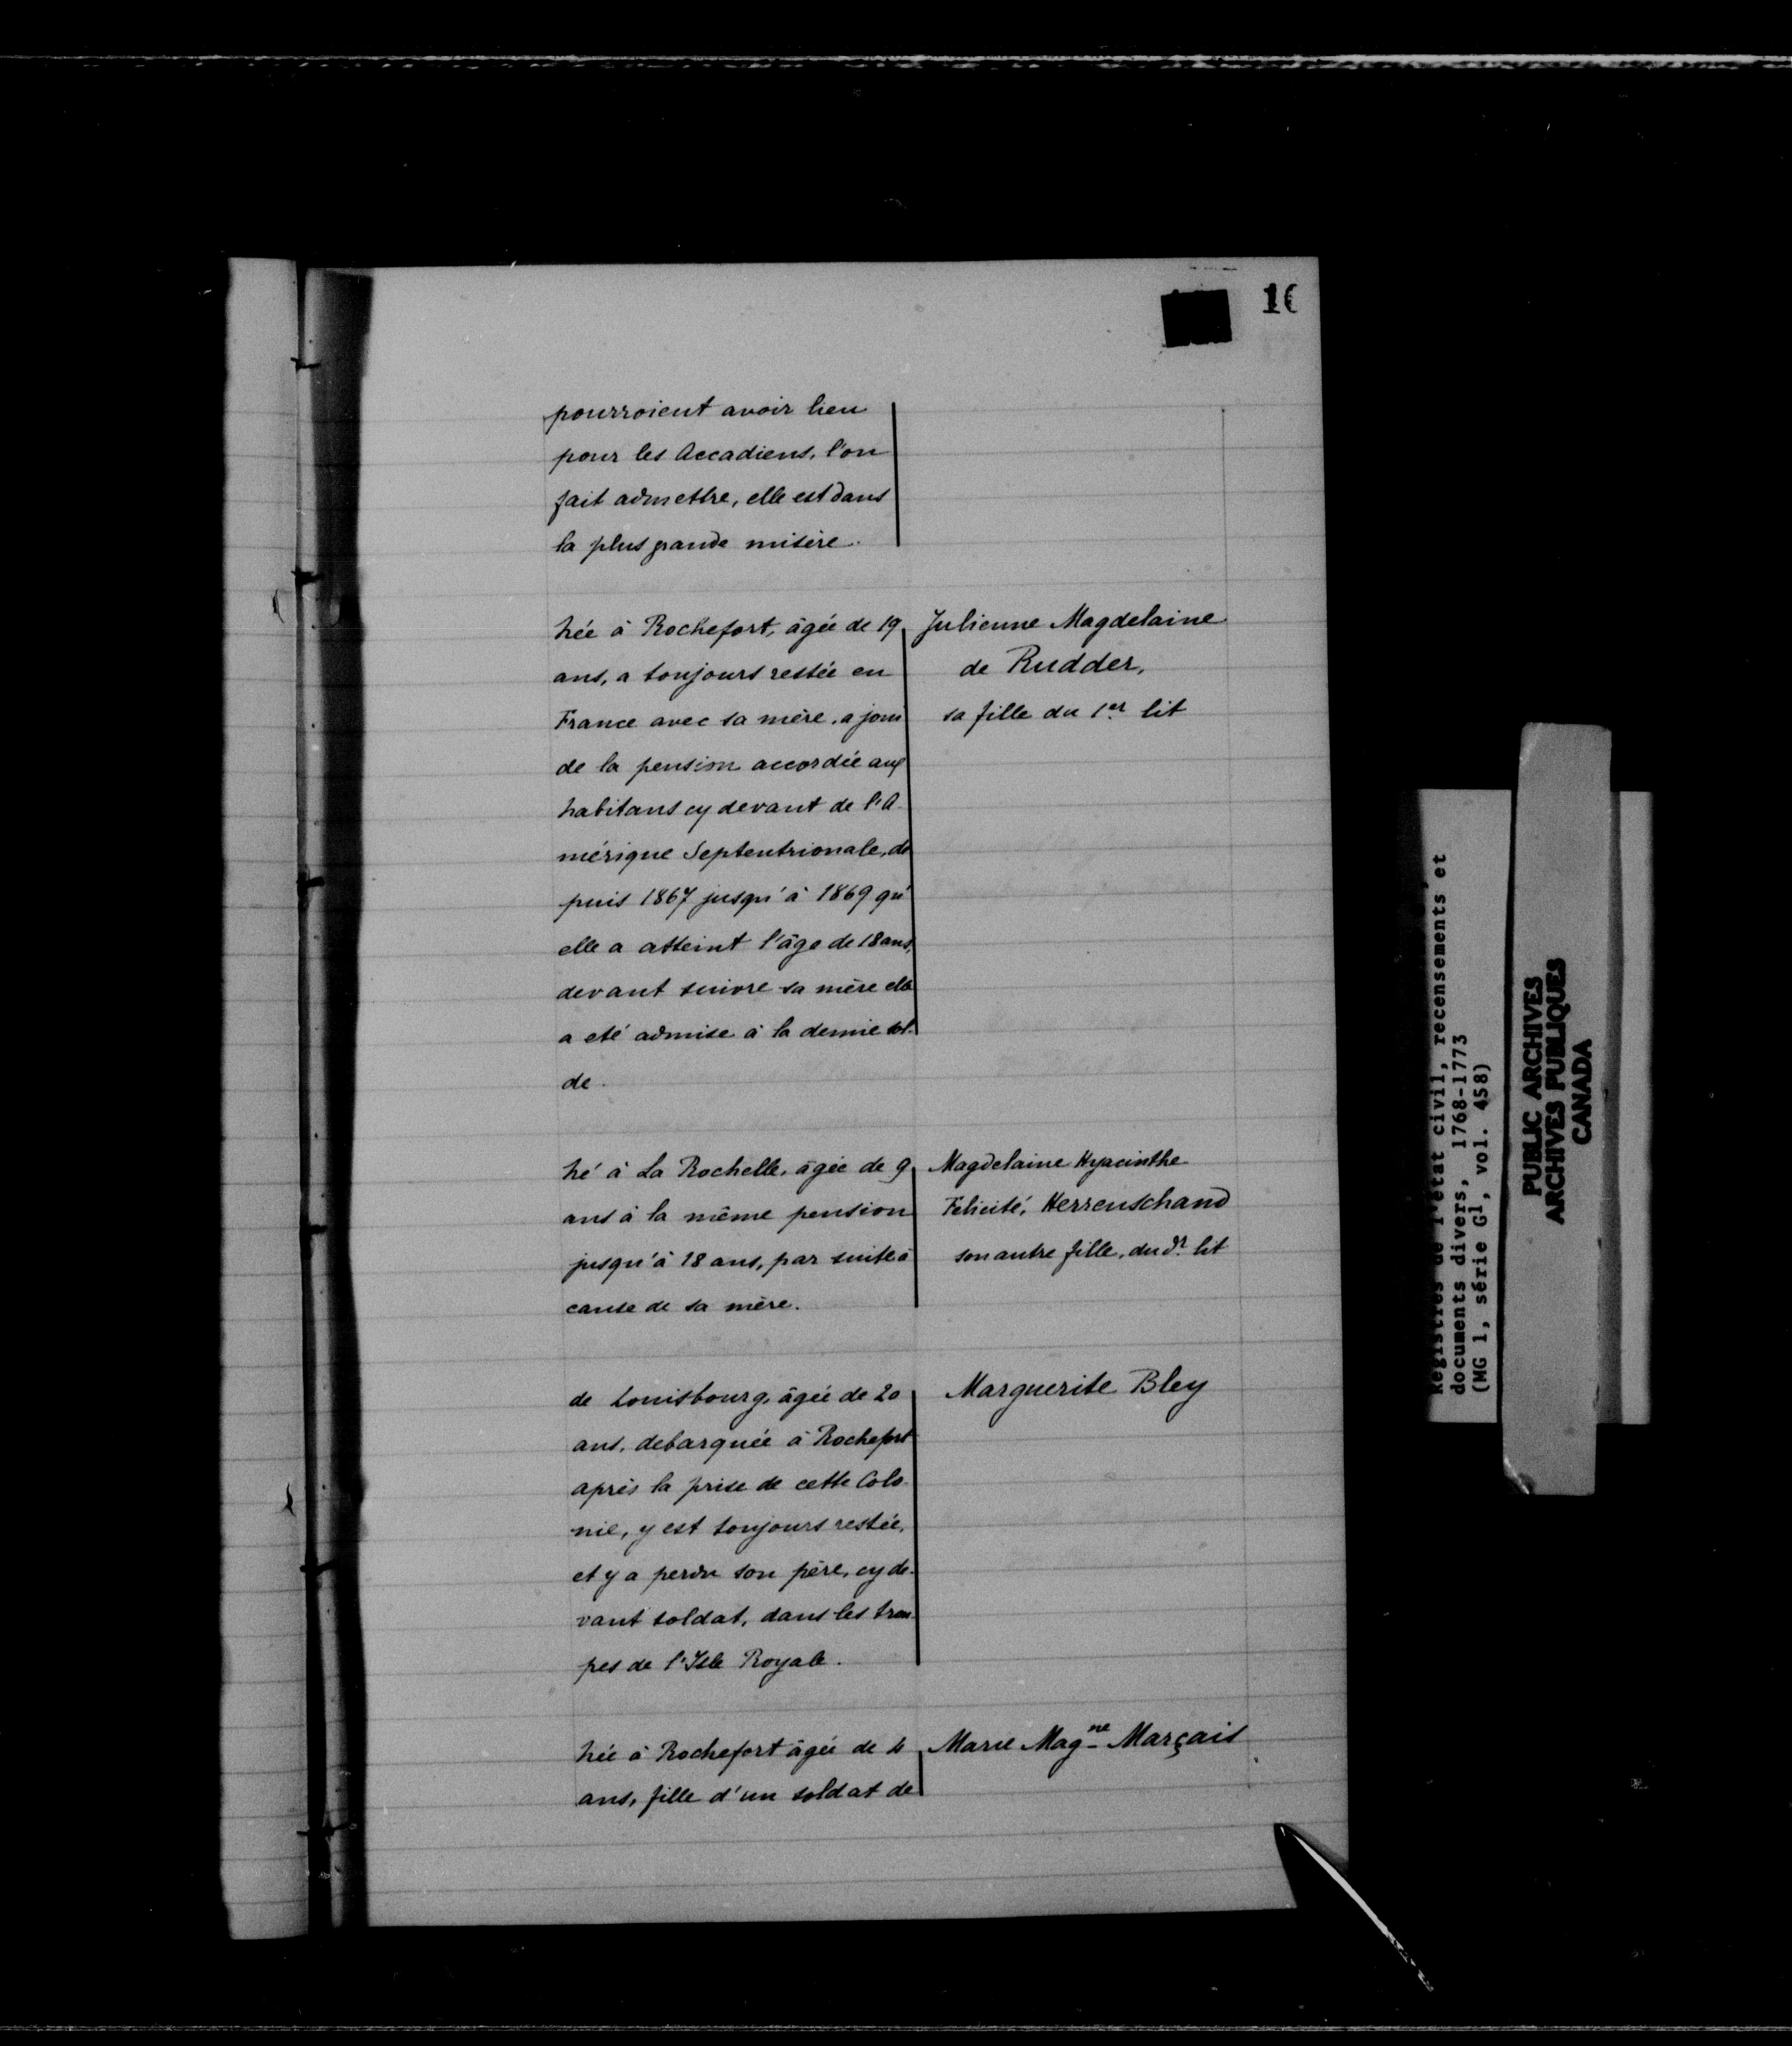 16
pourroient avoir lieu
pour les Accadiens, l'on
fait admettre, elle est dans
la plus grande misère.
Née à Rochefort, âgée de 19
ans, a toujours restée en
France avec sa mère, a joui
de la pension accordée aux
habitans cy devant de l'A-
mérique Septentrionale, de
puis 1867 jusqu'à 1869 qu'
elle a atteint l'âge de 18 ans,
devant suivre sa mère elle
a eté admise à la demie sol-
de.
Julienne Magdelaine
de Rudder,
sa fille du 1er lit
Né à La Rochelle, âgée de 9
ans à la même pension
jusqu'à 18 ans, par suite à
cause de sa mère.
Magdelaine Hyacinthe
Felicité, Herrenschand
son autre fille, du dr lit
de Louisbourg, âgée de 20
ans, debarquée à Rochefort
après la prise de cette Colo-
nie, y est toujours restée,
et y a perdu son père, cy de-
vant soldat, dans les trou-
pes de l'Isle Royale.
Marguerite Bley
Née à Rochefort âgée de 4
ans, fille d'un soldat de
Marie Magne Marçais
Registres de l'état civil, recensements et
documents divers, 1768-1773
(MG 1, série G1, vol. 458)
PUBLIC ARCHIVES
ARCHIVES PUBLIQUES
CANADA